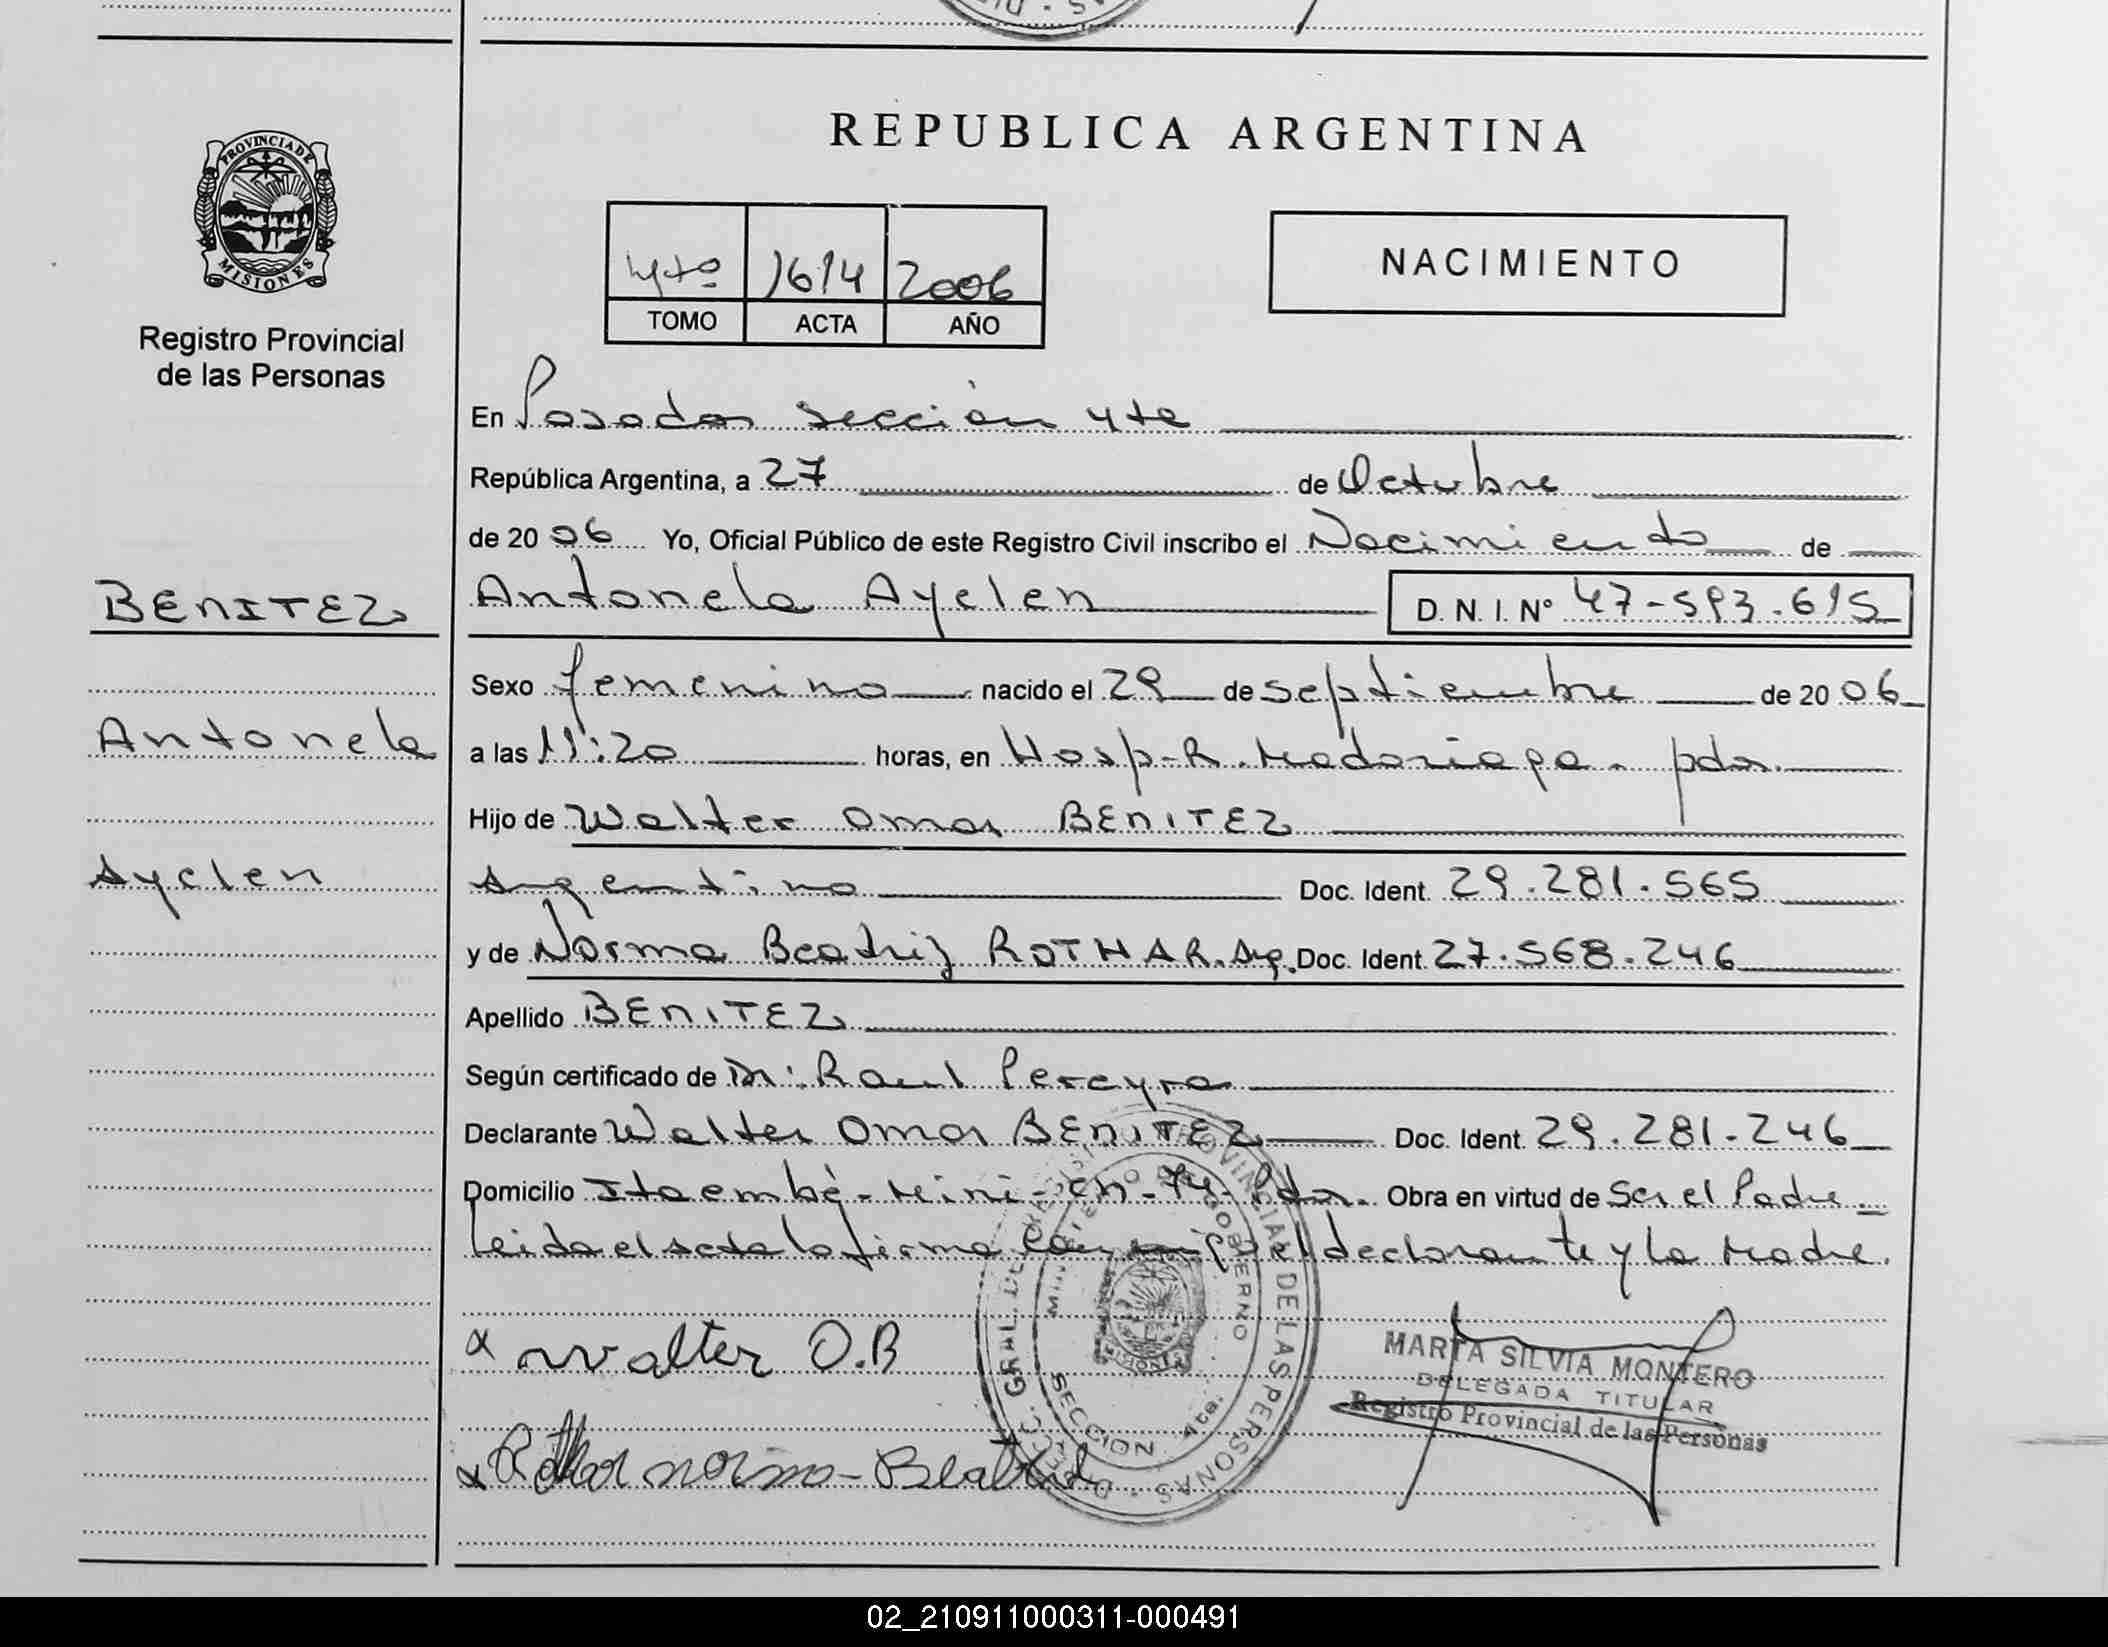 REPUBLICA ARGENTINA
PROVINCIA DE MISIONES
Registro Provincial
de las Personas
4to 1614 2006
TOMO ACTA AÑO
NACIMIENTO
En Posadas sección 4ta
República Argentina, a 27 de Octubre
de 20 06 Yo, Oficial Público de este Registro Civil inscribo el Nacimiento de
BENITEZ
Antonela Ayelen D. N. I. N° 47-593.615
Sexo femenino nacido el 29 de septiembre de 20 06
Antonela
a las 11:20 horas, en Hosp-R. Madariaga. pdas.
Hijo de Walter Omar BENITEZ
Ayelen
Argentino Doc. Ident. 29.281.565
y de Norma Beatriz ROTHAR. Arg. Doc. Ident. 27.568.246
Apellido BENITEZ
Según certificado de Dr: Raul Pereyra
Declarante Walter Omar BENITEZ Doc. Ident. 29.281.246
Domicilio Itaembé-Mini-ch-74-Pdas. Obra en virtud de Ser el Padre
Leida el acta la firma con migo el declarante y la Madre.
x Walter O.B
x Rothar norma-Beatriz
MARTA SILVIA MONTERO
DELEGADA TITULAR
Registro Provincial de las Personas
MINISTERIO DE GOBIERNO
SECCION 4ta.
02_210911000311-000491